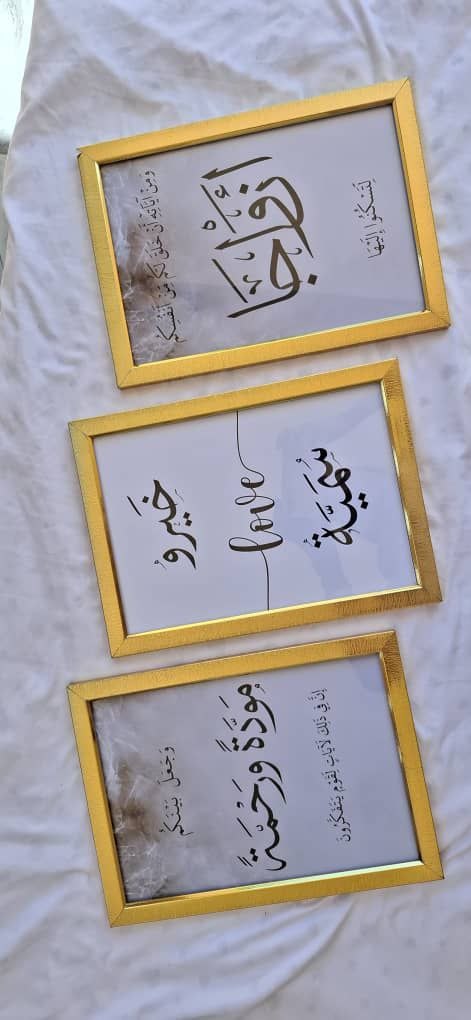 وَمِنْ آيَاتِهِ أَنْ خَلَقَ لَكُم مِّنْ أَنفُسِكُمْ
أَزْوَاجًا
لِّتَسْكُنُوا إِلَيْهَا
خَيْرُو
love
سُمَيَّة
وَجَعَلَ بَيْنَكُم
مَّوَدَّةً وَرَحْمَةً
إِنَّ فِي ذَلِكَ لَآيَاتٍ لِّقَوْمٍ يَتَفَكَّرُونَ